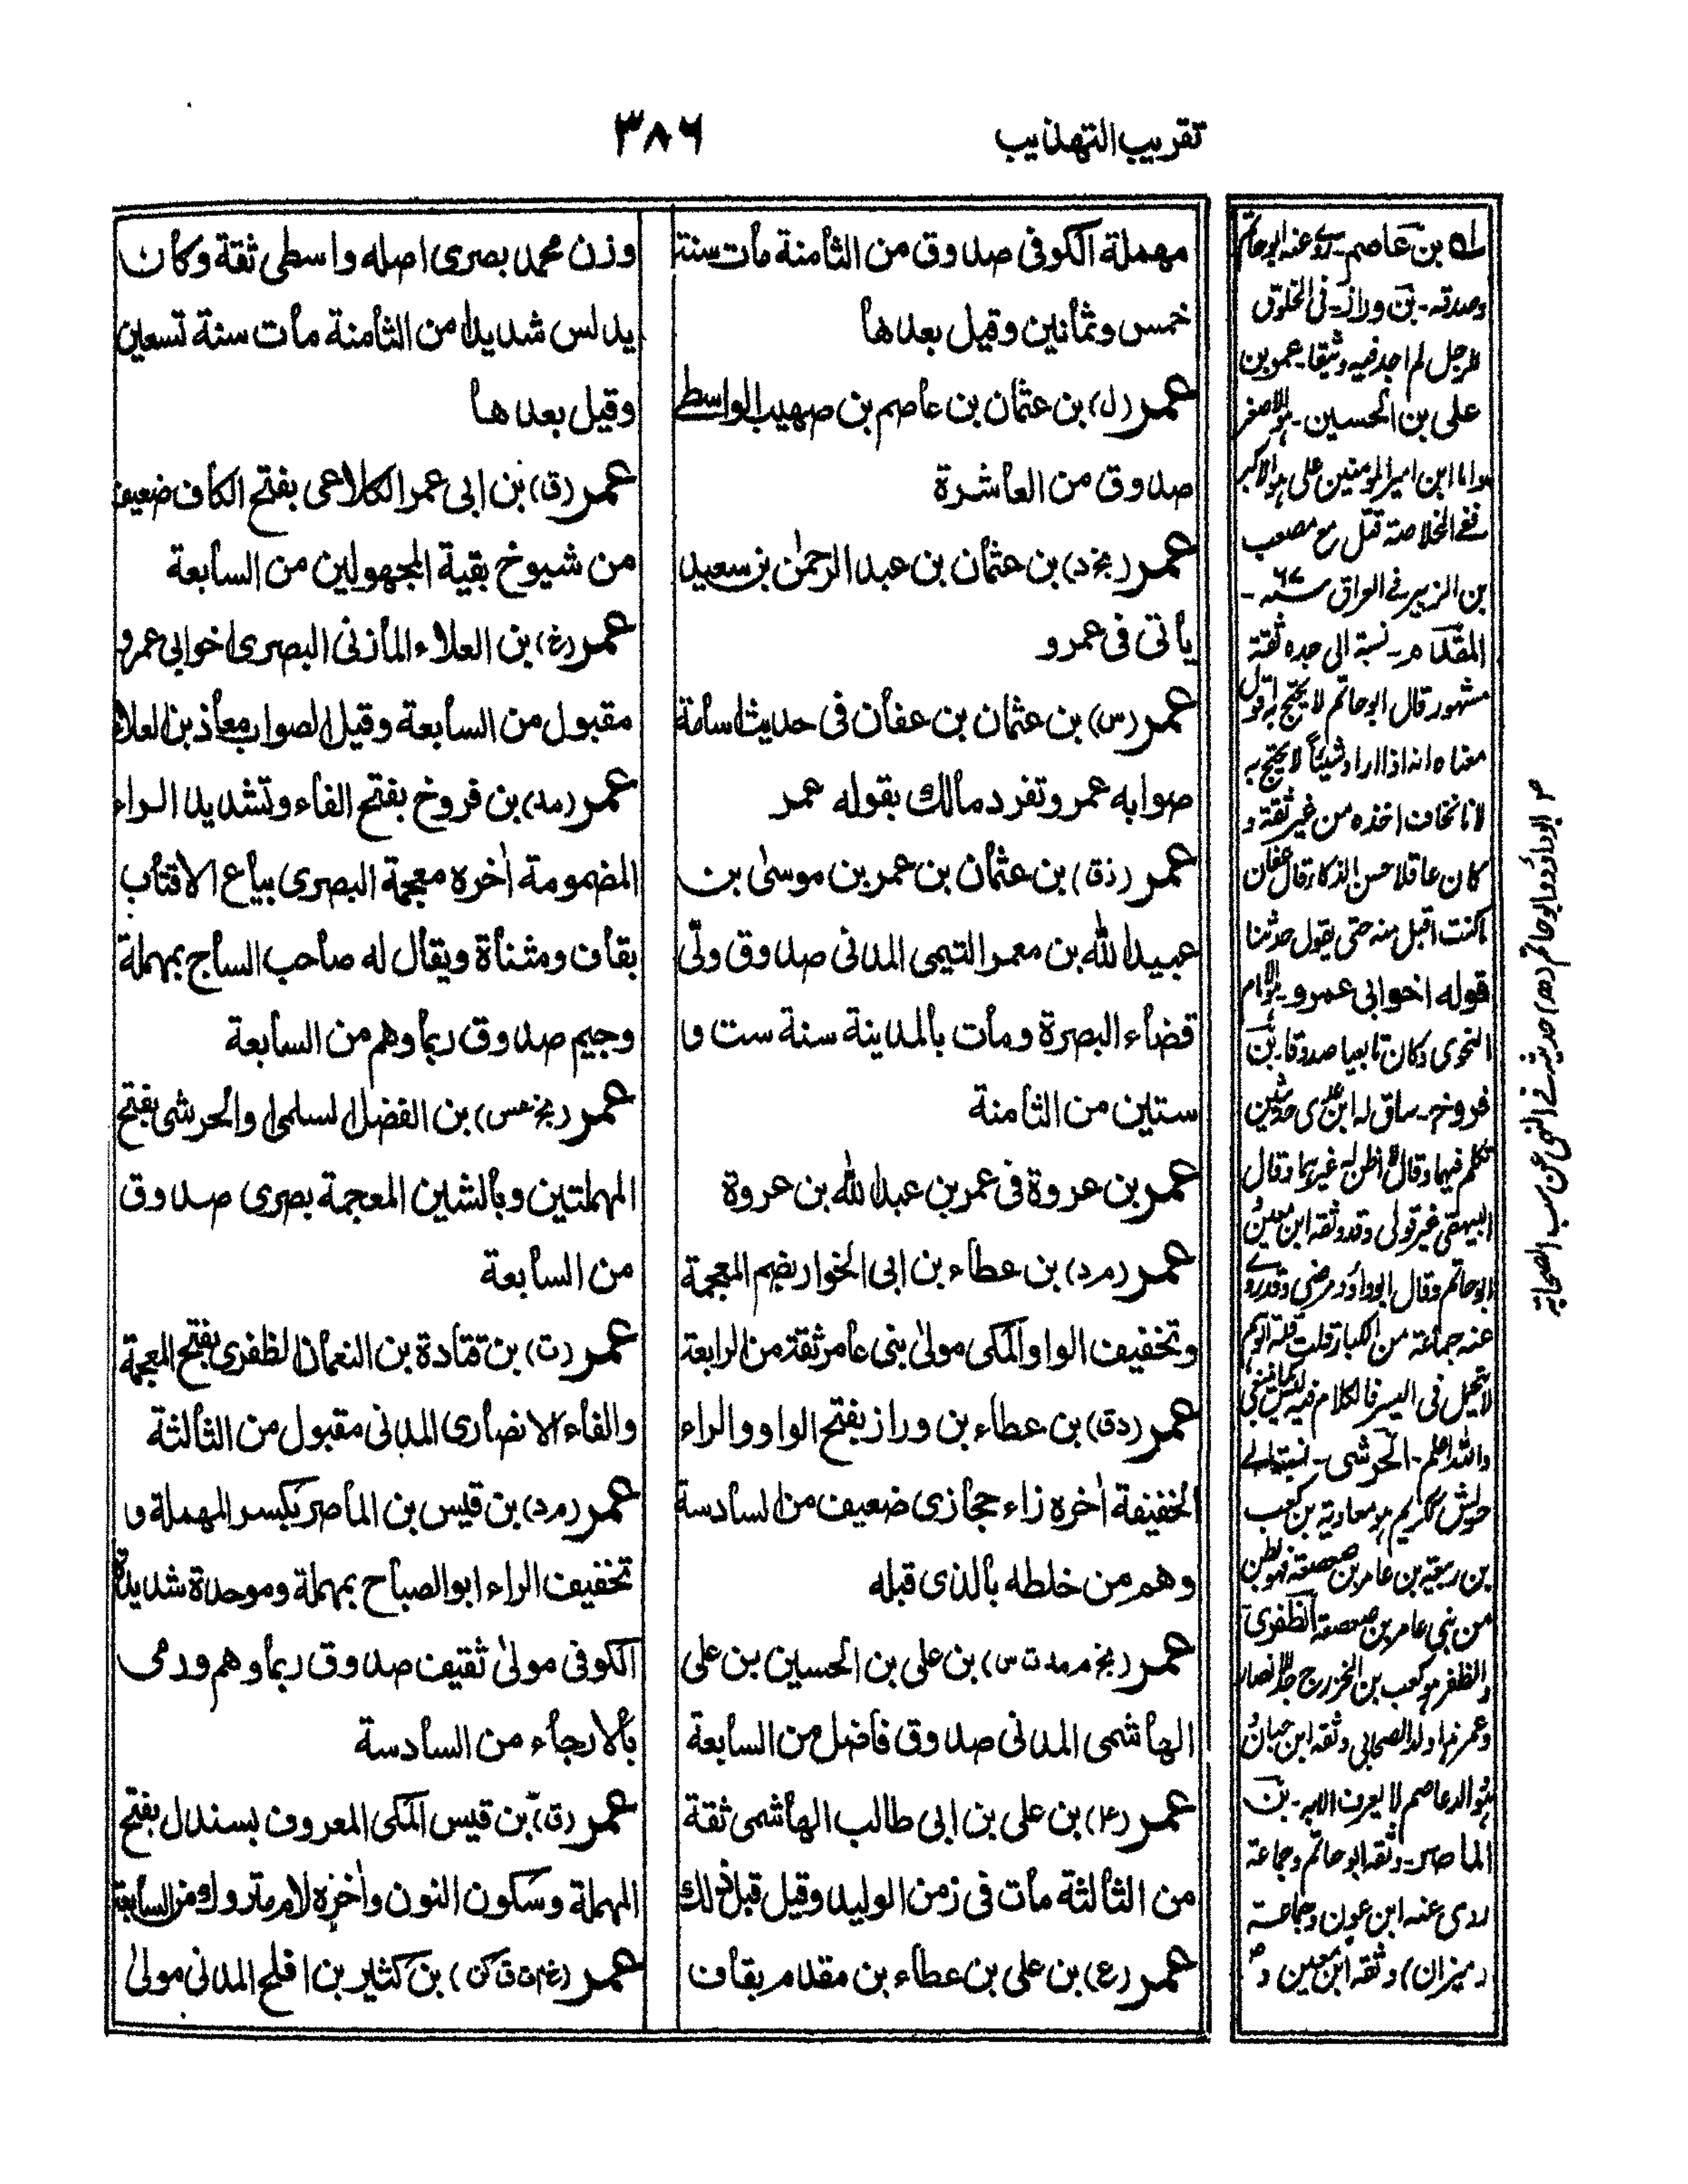 تقریب التهذیب
۳۸۶
مهملة الکوفی صدوق من الثامنة مات سنة
خمس وثمانین وقیل بعدها
عمر (ل) بن عثمان بن عاصم بن صهیب الواسطی
صدوق من العاشرة
عمر (بخ د) بن عثمان بن عبد الرحمٰن بن سعید
یأتی فی عمرو
عمر (س) بن عثمان بن عفان فی حدیث اسامة
صوابه عمرو تفرد مالك بقوله عمر
عمر (ذق) بن عثمان بن عمر بن موسیٰ بن
عبید الله بن معمر التیمی المدنی صدوق ولّی
قضاء البصرة ومات بالمدینة سنة ست و
ستین من الثامنة
عمر بن عروة فی عمر بن عبد الله بن عروة
عمر (مرد) بن عطاء بن ابی الخوار بضم المعجمة
وتخفیف الواو المکی مولیٰ بنی عامر ثقة من الرابعة
عمر (دق) بن عطاء بن وراز بفتح الواو والراء
الخفیفة اٰخره زاء حجازی ضعیف من السادسة
وهم من خلطه بالذی قبله
عمر (بخ م مد ت س) بن علی بن الحسین بن علی
الهاشمی المدنی صدوق فاضل من السابعة
عمر (۴) بن علی بن ابی طالب الهاشمی ثقة
من الثالثة مات فی زمن الولید وقیل قبل ذلك
عمر (ع) بن علی بن عطاء بن مقدم بقاف
وزن محمد بصری اصله واسطی ثقة وکان
یدلس شدیدا من الثامنة مات سنة تسعین
وقیل بعدها
عمر (ق) بن ابی عمر الکلاعی بفتح الکاف ضعیف
من شیوخ بقیة المجهولین من السابعة
عمر (خ) بن العلاء المازنی البصری اخو ابی عمرو
مقبول من السابعة وقیل الصواب معاذ بن العلاء
عمر (مد) بن فروخ بفتح الفاء وتشدید الراء
المضمومة اٰخره معجمة البصری بیاع الاقتاب
بقاف ومثناة ویقال له صاحب الساج بمهملة
وجیم صدوق ربما وهم من السابعة
عمر (بخ عس) بن الفضل السلمی او الحرشی بفتح
المهملتین وبالشین المعجمة بصری صدوق
من السابعة
عمر (ت) بن قتادة بن النعمان الظفری بفتح المعجمة
والفاء الانصاری المدنی مقبول من الثالثة
عمر (مرد) بن قیس بن الماصر بکسر المهملة و
تخفیف الراء ابو الصباح بمهملة وموحدة شدیدة
الکوفی مولیٰ ثقیف صدوق ربما وهم ورمی
بالارجاء من السادسة
عمر (ق) بن قیس المکی المعروف بسندل بفتح
المهملة وسکون النون واٰخره لام متروك من السابعة
عمر بن کثیر بن افلح المدنی مولیٰ
بن عاصم - روی عنه ابو حاتم
وصدقه - بن وراز - فی الخلوق
للرجل لم اجد فیه وثیقا - عمر بن
علی بن الحسین - هو الاصغر
واما ابن امیر المومنین علی هو الاکبر
ففی الخلاصة قتل مع مصعب
بن الزبیر فی العراق سنه ۶۷ -
المقدم - نسبة الی جده ثقة
مشهور قال ابو حاتم لا یحتج به اقول
معناه انه اذا اراد شیئا لا یحتج به
لانا نخاف اخذه من غیر ثقة و
کان عاقلا حسن الذکاء قال عفان
ما کنت اقبل منه حتی یقول حدثنا
قوله اخو ابی عمرو - الامام
النحوی وکان تابعیا صدوقا - بن
فروخ - ساق له ابن عدی حدیثین
تکلم فیهما وقال لا اظن له غیرهما وقال
البیهقی غیر قوی وقد وثقه ابن معین و
ابو حاتم وقال ابو داؤد مرضی وقد روی
عنه جماعة من الکبار قلت
والله اعلم - الحرشی - نسبة الی
حریش ککریم هو معاویة بن کعب
بن ربیعة بن عامر بن صعصعة فهو بطن
من بنی عامر بن صعصعة الظفری
والظفر هو کعب بن الخزرج جد الانصار
وعمر هذا ولد الصحابی وثقه ابن حبان و
هو والد عاصم لا یعرف الا به - بن
الماصر - وثقه ابو حاتم وجماعة
روی عنه ابن عون وجماعة
(میزان) وثقه ابن معین و
ابو داؤد وابو حاتم (ده) حدیثه فی النهی عن سب الصحابة